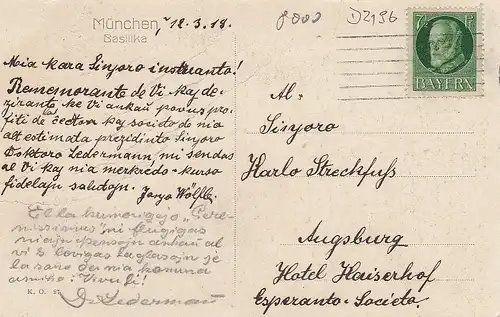 München,
Basilika
12.3.18.
8000
D2196
7½ P
BAYERN
Mia kara Sinjoro instruanto!
Rememorante de Vi kaj de-
zirante ke Vi ankaŭ povus pro-
fiti de ĉeestan kaj societo de nia
altestimata prezidinto Sinjoro
Doktoro Ledermann, mi sendas
al Vi kaj nia merkredo-kurso
fidelajn salutojn. Wölfle.
Al.
Sinjoro
Karlo Streckfuss
Augsburg
Hotel Kaiserhof
Esperanto-Societo.
El la "Pere-
mi flugigas
miajn pensojn ankaŭ al
vi & levigas la glason je
la sano de nia komuna
amiko: Vivu!
Dr Ledermann
K. O. 27